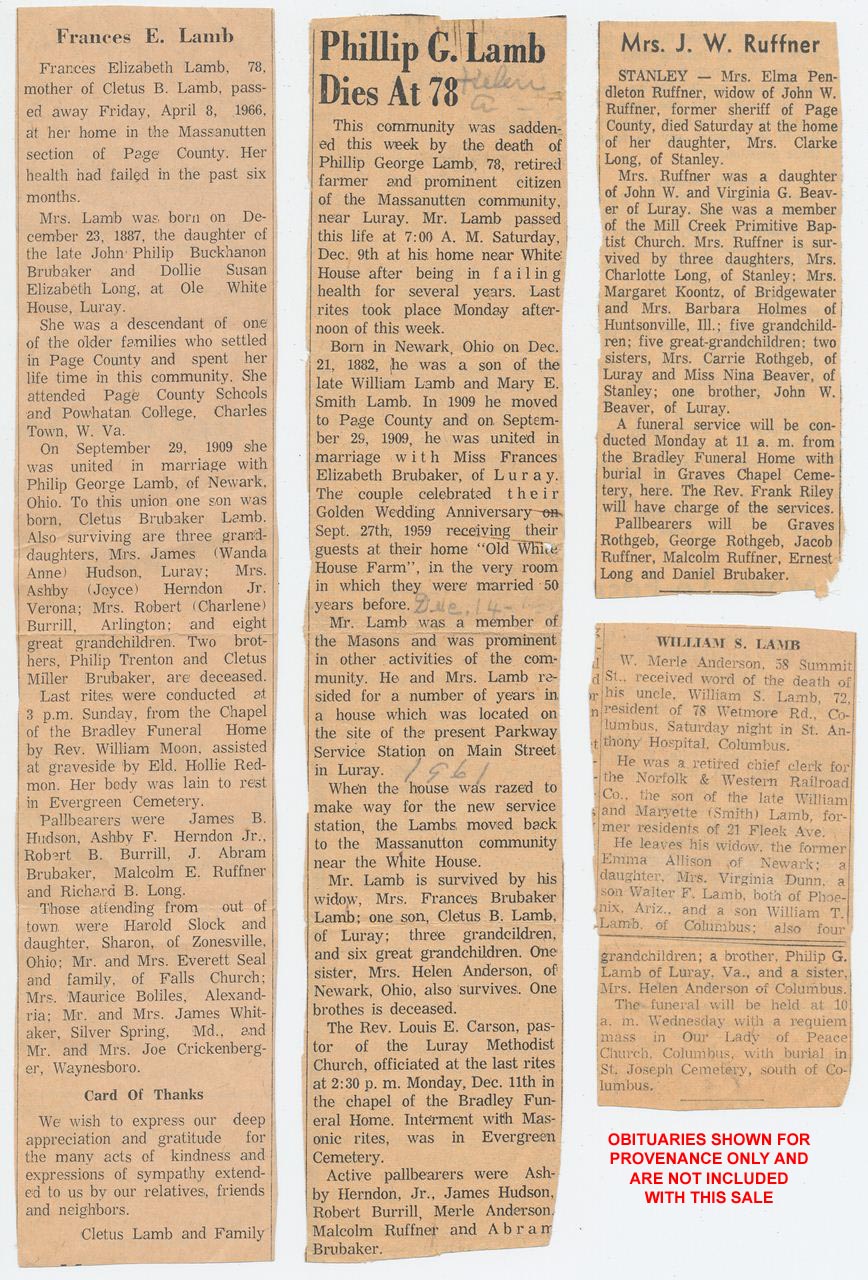 Frances E. Lamb
Frances Elizabeth Lamb, 78,
mother of Cletus B. Lamb, pass-
ed away Friday, April 8, 1966,
at her home in the Massanutten
section of Page County. Her
health had failed in the past six
months.
Mrs. Lamb was born on De-
cember 23, 1887, the daughter of
the late John Philip Buckhanon
Brubaker and Dollie Susan
Elizabeth Long, at Ole White
House, Luray.
She was a descendant of one
of the older families who settled
in Page County and spent her
life time in this community. She
attended Page County Schools
and Powhatan College, Charles
Town, W. Va.
On September 29, 1909 she
was united in marriage with
Philip George Lamb, of Newark,
Ohio. To this union one son was
born, Cletus Brubaker Lamb.
Also surviving are three grand-
daughters, Mrs. James (Wanda
Anne) Hudson, Luray; Mrs.
Ashby (Joyce) Herndon Jr.
Verona; Mrs. Robert (Charlene)
Burrill, Arlington; and eight
great grandchildren. Two brot-
hers, Philip Trenton and Cletus
Miller Brubaker, are deceased.
Last rites were conducted at
3 p.m. Sunday, from the Chapel
of the Bradley Funeral Home
by Rev. William Moon, assisted
at graveside by Eld. Hollie Red-
mon. Her body was lain to rest
in Evergreen Cemetery.
Pallbearers were James B.
Hudson, Ashby F. Herndon Jr.,
Robert B. Burrill, J. Abram
Brubaker, Malcolm E. Ruffner
and Richard B. Long.
Those attending from out of
town were Harold Slock and
daughter, Sharon, of Zonesville,
Ohio; Mr. and Mrs. Everett Seal
and family, of Falls Church;
Mrs. Maurice Boliles, Alexand-
ria; Mr. and Mrs. James Whit-
aker, Silver Spring, Md., and
Mr. and Mrs. Joe Crickenberg-
er, Waynesboro.
Card Of Thanks
We wish to express our deep
appreciation and gratitude for
the many acts of kindness and
expressions of sympathy extend-
ed to us by our relatives, friends
and neighbors.
Cletus Lamb and Family
Phillip G. Lamb
Dies At 78
Helen
This community was sadden-
ed this week by the death of
Phillip George Lamb, 78, retired
farmer and prominent citizen
of the Massanutten community,
near Luray. Mr. Lamb passed
this life at 7:00 A. M. Saturday,
Dec. 9th at his home near White
House after being in failing
health for several years. Last
rites took place Monday after-
noon of this week.
Born in Newark, Ohio on Dec.
21, 1882, he was a son of the
late William Lamb and Mary E.
Smith Lamb. In 1909 he moved
to Page County and on Septem-
ber 29, 1909, he was united in
marriage with Miss Frances
Elizabeth Brubaker, of Luray.
The couple celebrated their
Golden Wedding Anniversary on
Sept. 27th, 1959 receiving their
guests at their home "Old White
House Farm", in the very room
in which they were married 50
years before. Dec. 14-
Mr. Lamb was a member of
the Masons and was prominent
in other activities of the com-
munity. He and Mrs. Lamb re-
sided for a number of years in
a house which was located on
the site of the present Parkway
Service Station on Main Street
in Luray. 1961
When the house was razed to
make way for the new service
station, the Lambs moved back
to the Massanutton community
near the White House.
Mr. Lamb is survived by his
widow, Mrs. Frances Brubaker
Lamb; one son, Cletus B. Lamb,
of Luray; three grandcildren,
and six great grandchildren. One
sister, Mrs. Helen Anderson, of
Newark, Ohio, also survives. One
brothes is deceased.
The Rev. Louis E. Carson, pas-
tor of the Luray Methodist
Church, officiated at the last rites
at 2:30 p. m. Monday, Dec. 11th in
the chapel of the Bradley Fun-
eral Home. Interment with Mas-
onic rites, was in Evergreen
Cemetery.
Active pallbearers were Ash-
by Herndon, Jr., James Hudson,
Robert Burrill, Merle Anderson,
Malcolm Ruffner and Abram
Brubaker.
Mrs. J. W. Ruffner
STANLEY — Mrs. Elma Pen-
dleton Ruffner, widow of John W.
Ruffner, former sheriff of Page
County, died Saturday at the home
of her daughter, Mrs. Clarke
Long, of Stanley.
Mrs. Ruffner was a daughter
of John W. and Virginia G. Beav-
er of Luray. She was a member
of the Mill Creek Primitive Bap-
tist Church. Mrs. Ruffner is sur-
vived by three daughters, Mrs.
Charlotte Long, of Stanley; Mrs.
Margaret Koontz, of Bridgewater
and Mrs. Barbara Holmes of
Huntsonville, Ill.; five grandchild-
ren; five great-grandchildren; two
sisters, Mrs. Carrie Rothgeb, of
Luray and Miss Nina Beaver, of
Stanley; one brother, John W.
Beaver, of Luray.
A funeral service will be con-
ducted Monday at 11 a. m. from
the Bradley Funeral Home with
burial in Graves Chapel Ceme-
tery, here. The Rev. Frank Riley
will have charge of the services.
Pallbearers will be Graves
Rothgeb, George Rothgeb, Jacob
Ruffner, Malcolm Ruffner, Ernest
Long and Daniel Brubaker.
WILLIAM S. LAMB
W. Merle Anderson, 58 Summit
St., received word of the death of
his uncle, William S. Lamb, 72,
resident of 78 Wetmore Rd., Co-
lumbus, Saturday night in St. An-
thony Hospital, Columbus.
He was a retired chief clerk for
the Norfolk & Western Railroad
Co., the son of the late William
and Maryette (Smith) Lamb, for-
mer residents of 21 Fleek Ave.
He leaves his widow, the former
Emma Allison of Newark; a
daughter, Mrs. Virginia Dunn, a
son Walter F. Lamb, both of Phoe-
nix, Ariz., and a son William T.
Lamb, of Columbus; also four
grandchildren; a brother, Philip G.
Lamb of Luray, Va., and a sister,
Mrs. Helen Anderson of Columbus.
The funeral will be held at 10
a. m. Wednesday with a requiem
mass in Our Lady of Peace
Church, Columbus, with burial in
St. Joseph Cemetery, south of Co-
lumbus.
OBITUARIES SHOWN FOR
PROVENANCE ONLY AND
ARE NOT INCLUDED
WITH THIS SALE